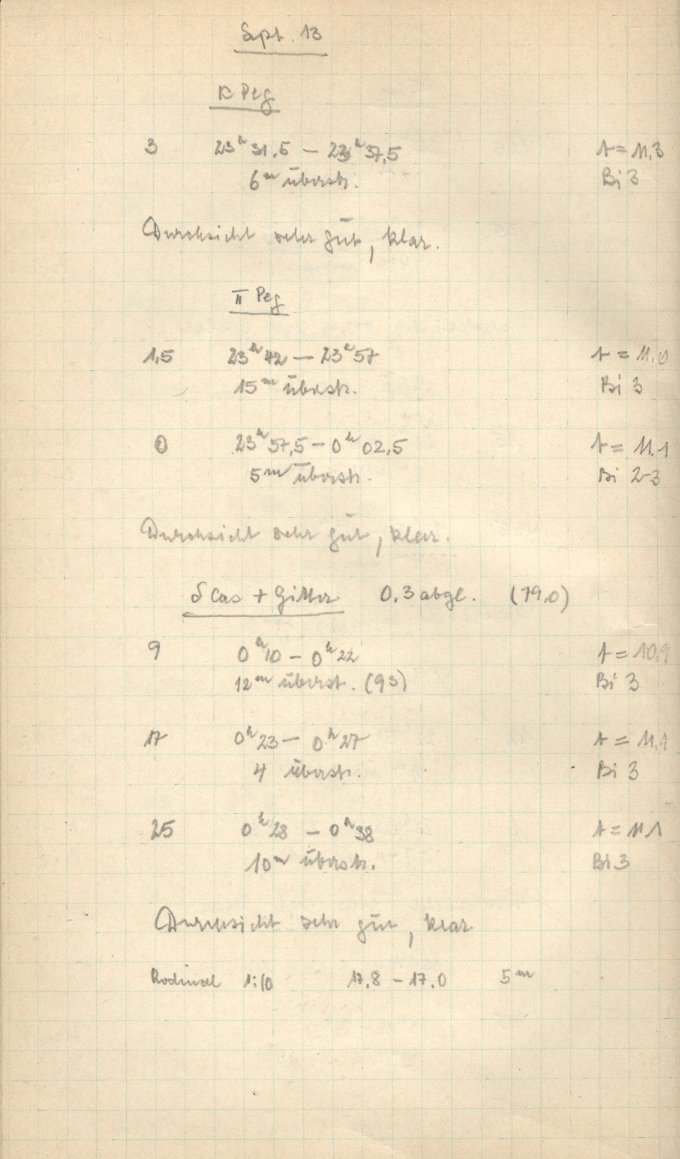 Sept. 13
κ Peg
3 23ʰ31,5 – 23ʰ37,5 t = 11,3
6ᵐ überstr. Bi 3
Durchsicht sehr gut, klar.
π Peg
1,5 23ʰ42 – 23ʰ57 t = 11,0
15ᵐ überstr. Bi 3
0 23ʰ57,5 – 0ʰ02,5 t = 11,1
5ᵐ überstr. Bi 2-3
Durchsicht sehr gut, klar.
δ Cas + Gitter 0,3 abgl. (79,0)
9 0ʰ10 – 0ʰ22 t = 10,9
12ᵐ überst. (93) Bi 3
17 0ʰ23 – 0ʰ27 t = 11,1
4 überstr. Bi 3
25 0ʰ28 – 0ʰ38 t = 11,1
10ᵐ überstr. Bi 3
Durchsicht sehr gut, klar.
Rodinal 1:10 17,8 – 17,0 5ᵐ